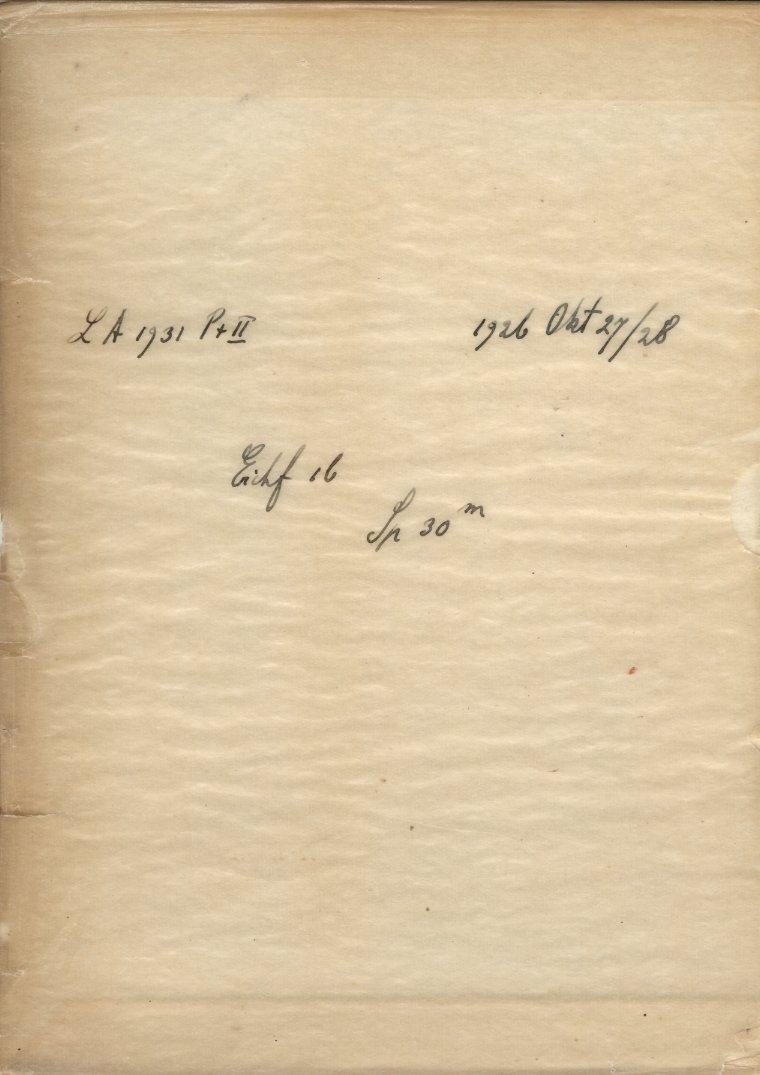 LA 1931 P+II 1926 Okt 27/28
Eichf 16
Sp 30 m